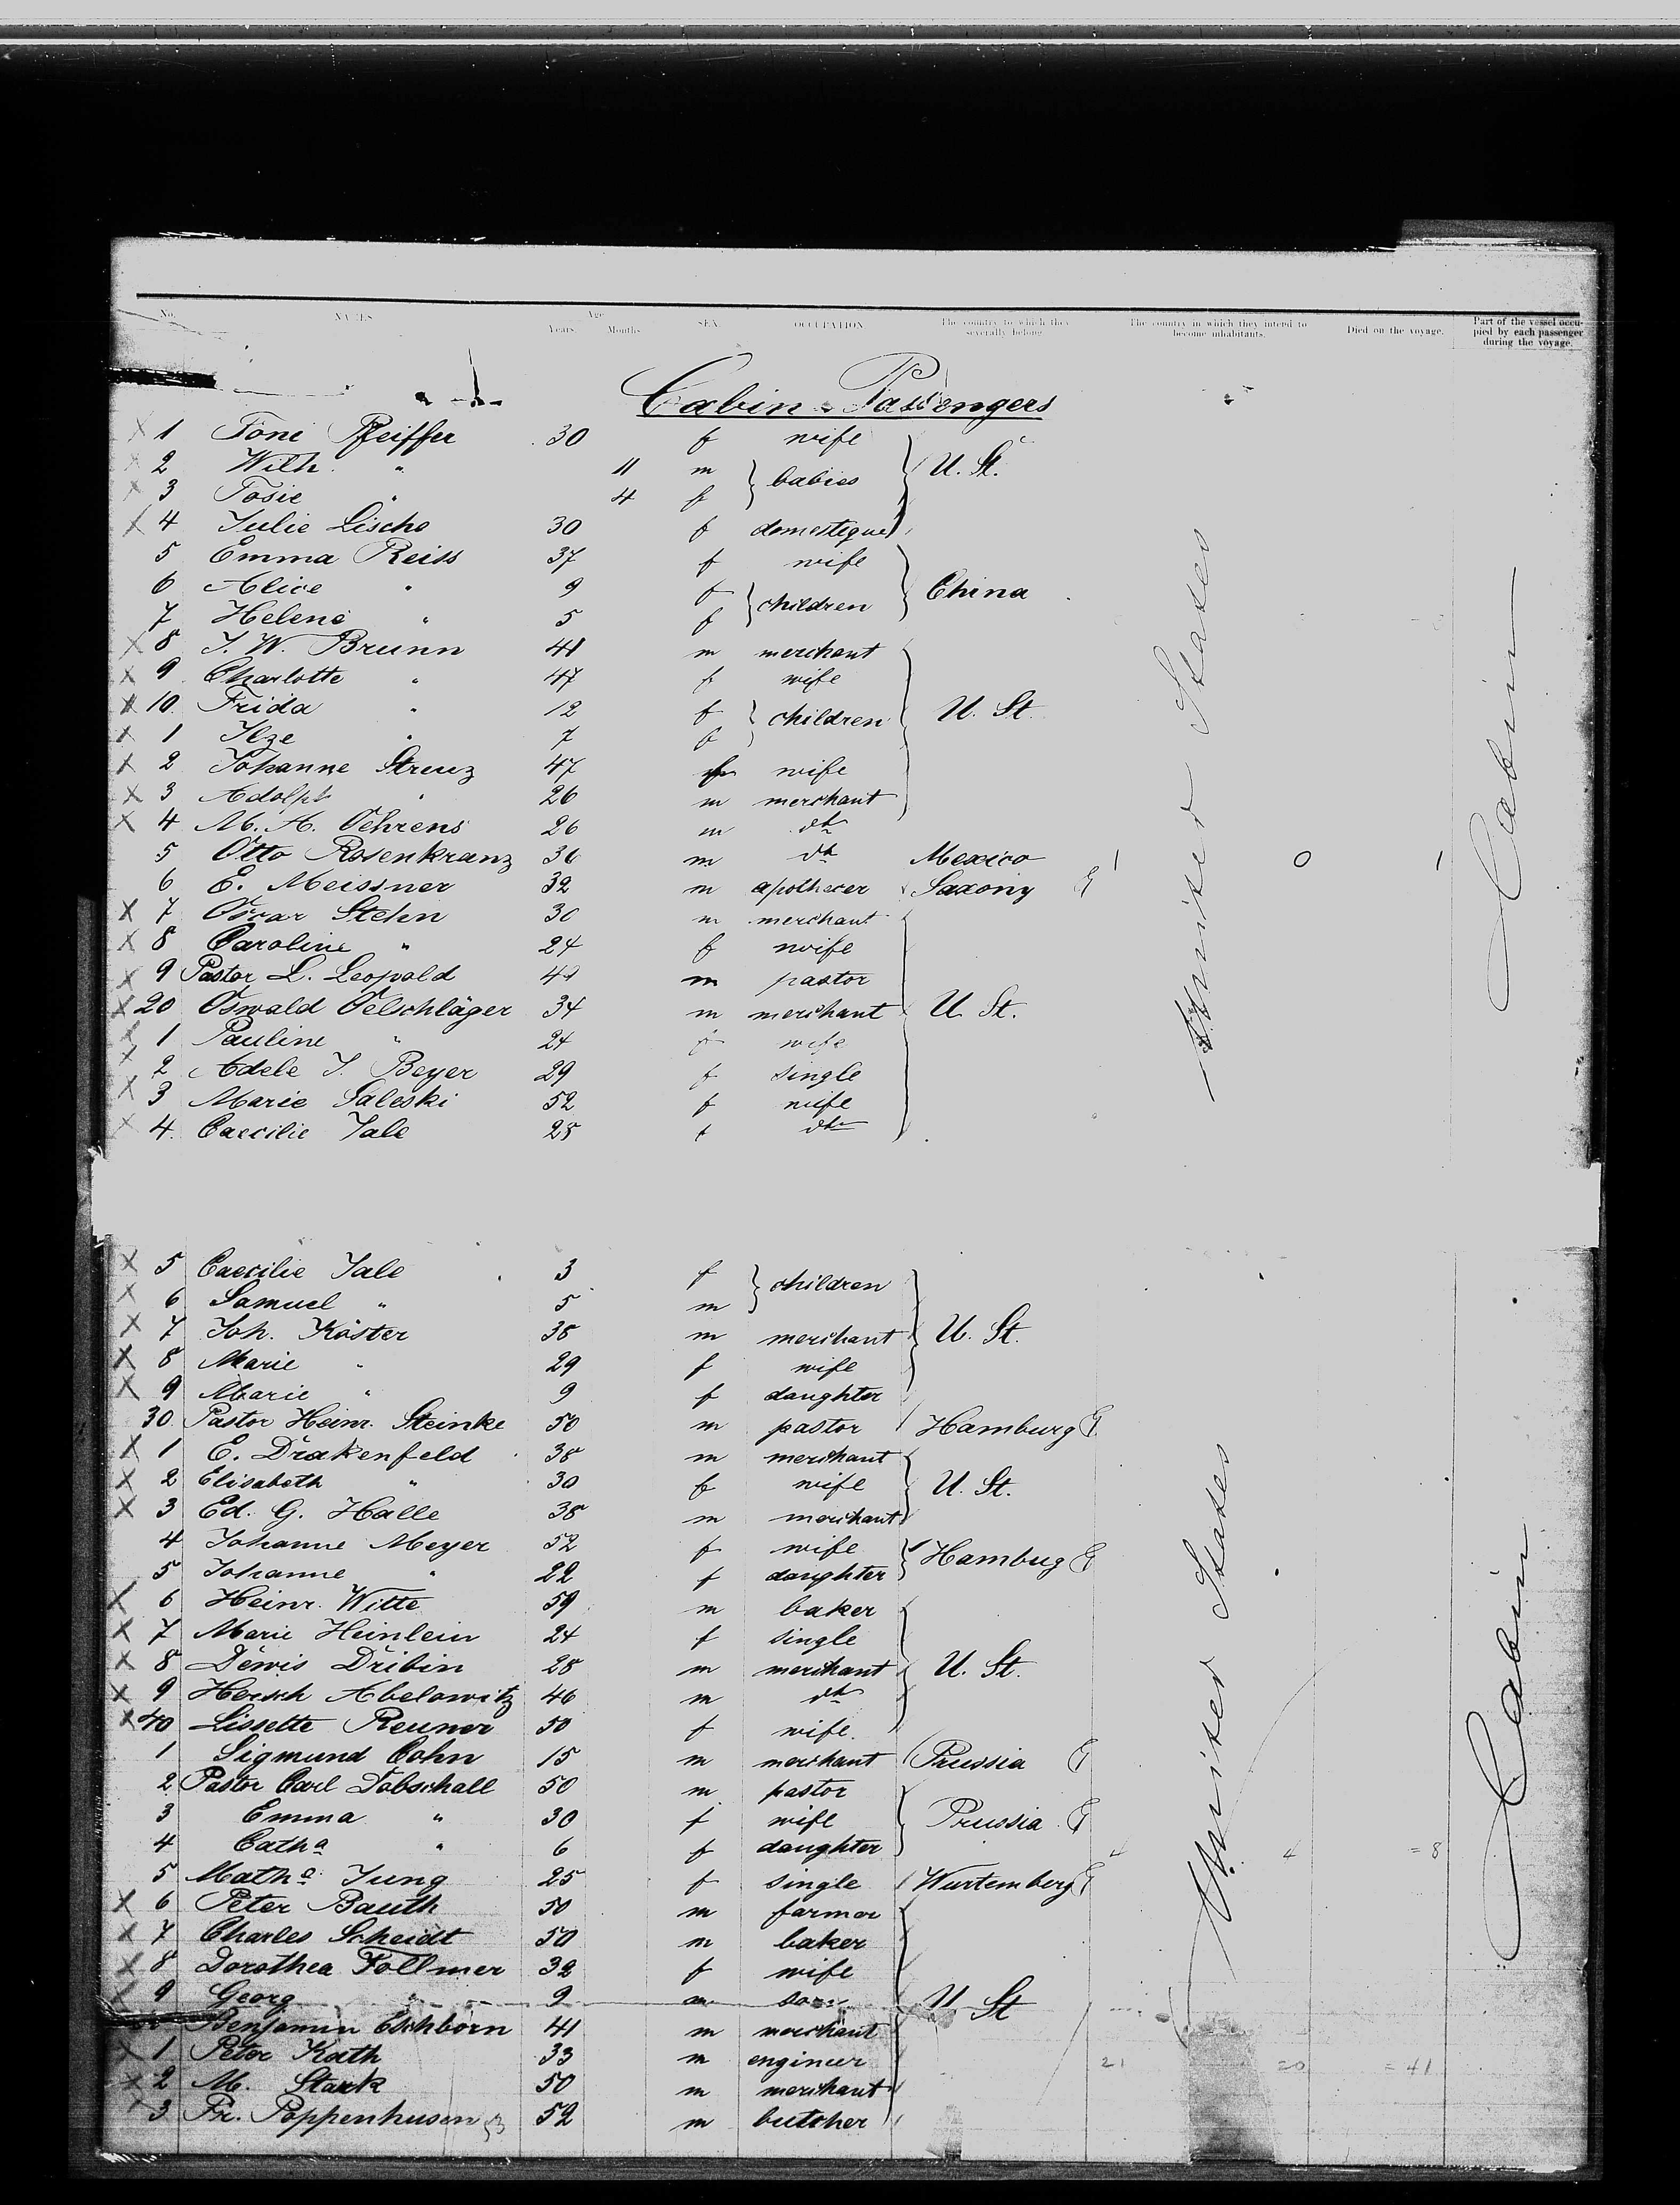 No. NAMES Age Years Months SEX OCCUPATION The country to which they severally belong. The country in which they intend to become inhabitants. Died on the voyage. Part of the vessel occupied by each passenger during the voyage.
Cabin-Passengers
X 1 Toni Pfeiffer 30 f wife
X 2 Wilh. " 11 m babies U. St.
X 3 Tosie " 4 f
X 4 Julie Lischo 30 f domestique
5 Emma Reiss 37 f wife
6 Alice " 9 f children China
7 Helene " 5 f
X 8 J. W. Brunn 41 m merchant
X 9 Charlotte " 47 f wife
X 10. Frida " 12 f children U. St.
X 1 Ilze " 7 f
X 2 Johanne Streuz 47 f wife
X 3 Adolph " 26 m merchant
X 4 M. A. Oehrens 26 m do
5 Otto Rosenkranz 36 m do Mexico 1 0 1
6 E. Meissner 32 m apothecer Saxony G
X 7 Oscar Stehn 30 m merchant
X 8 Caroline " 24 f wife
X 9 Pastor L. Leopold m pastor
X 20 Oswald Oelschläger 34 m merchant U. St.
X 1 Pauline " 24 f wife
X 2 Adele J. Beyer 29 f single
X 3 Marie Saleski 52 f wife
X 4. Caecilie Jale 28 f do
United States
Cabin
X 5 Caecilie Jale 3 f children
X 6 Samuel " 5 m
X 7 Joh. Köster 38 m merchant U. St.
X 8 Marie " 29 f wife
X 9 Marie " 9 f daughter
30 Pastor Heinr. Steinke 50 m pastor Hamburg G
X 1 E. Drakenfeld 38 m merchant
X 2 Elisabeth " 30 f wife U. St.
X 3 Ed. G. Halle 38 m merchant
4 Johanne Meyer 52 f wife Hambug G
5 Johanne " 22 f daughter
X 6 Heinr. Witte 59 m baker
X 7 Marie Heinlein 24 f single
X 8 Dewis Dribin 28 m merchant U. St.
X 9 Hersch Abelowitz 46 m do
X 40 Lissette Reuner 50 f wife.
1 Sigmund Cohn 15 m merchant Prussia G
2 Pastor Carl Dobschall 50 m pastor
3 Emma " 30 f wife Prussia G
4 Catha " 6 f daughter 4 4 = 8
5 Matha Jung 25 f single Wurtemberg G
X 6 Peter Bauth 50 m farmer
X 7 Charles Scheidt 50 m baker
X 8 Dorothea Follmer 32 f wife
X 9 Georg " 9 m son U St
Benjamin Eschborn 41 m merchant
X 1 Peter Kath 33 m engineer 21 20 = 41
X 2 M. Stark 50 m merchant
X 3 Fr. Poppenhusen 53 52 m butcher
United States
Cabin